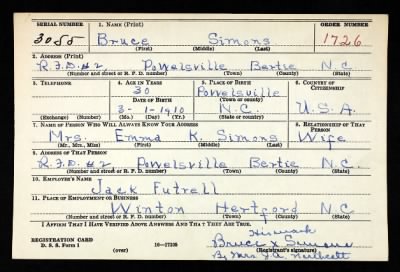 SERIAL NUMBER 1. NAME (Print) ORDER NUMBER
3055 Bruce Simons 1726
(First) (Middle) (Last)
2. ADDRESS (Print)
R.F.D. #2 Powelsville Bertie N.C.
(Number and street or R. F. D. number) (Town) (County) (State)
3. TELEPHONE 4. AGE IN YEARS 5. PLACE OF BIRTH 6. COUNTRY OF CITIZENSHIP
30 Powelsville
DATE OF BIRTH (Town or county)
3-1-1910 N.C. U.S.A.
(Exchange) (Number) (Mo.) (Day) (Yr.) (State or country)
7. NAME OF PERSON WHO WILL ALWAYS KNOW YOUR ADDRESS 8. RELATIONSHIP OF THAT PERSON
Mrs. Emma K. Simons Wife
(Mr., Mrs., Miss) (First) (Middle) (Last)
9. ADDRESS OF THAT PERSON
R.F.D. #2 Powelsville Bertie N.C.
(Number and street or R. F. D. number) (Town) (County) (State)
10. EMPLOYER'S NAME
Jack Futrell
11. PLACE OF EMPLOYMENT OR BUSINESS
Winton Hertford N.C.
(Number and street or R. F. D. number) (Town) (County) (State)
I AFFIRM THAT I HAVE VERIFIED ABOVE ANSWERS AND THAT THEY ARE TRUE.
His mark
REGISTRATION CARD Bruce x Simons
D. S. S. Form 1 (over) 16—17105 (Registrant's signature)
By Mrs. J.A.